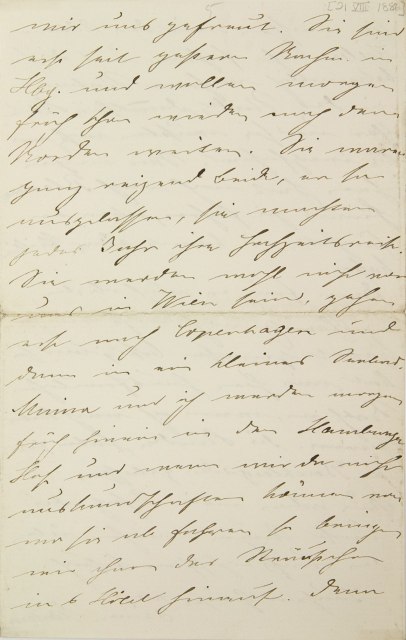 5 [21 VIII 188
mir uns gefreut. Sie sind
erst seit gestern Nachm. in
Hbg. und wollen morgen
früh schon wieder nach dem
Norden weiter. Sie waren
ganz reizend Beide, er so
ausgelassen, sie machten
jedes Jahr ihre Hochzeitsreise.
Sie werden wohl nicht vor
uns in Wien sein, gehen
erst nach Copenhagen und
dann in ein kleines Seebad.
Minna und ich werden morgen
früh hinein in den Hamburger
Hof und wenn wir da nicht
auskundschaften können von
wo sie abfahren so bringen
wir ihnen das
in s Hôtel hinauf. Denn